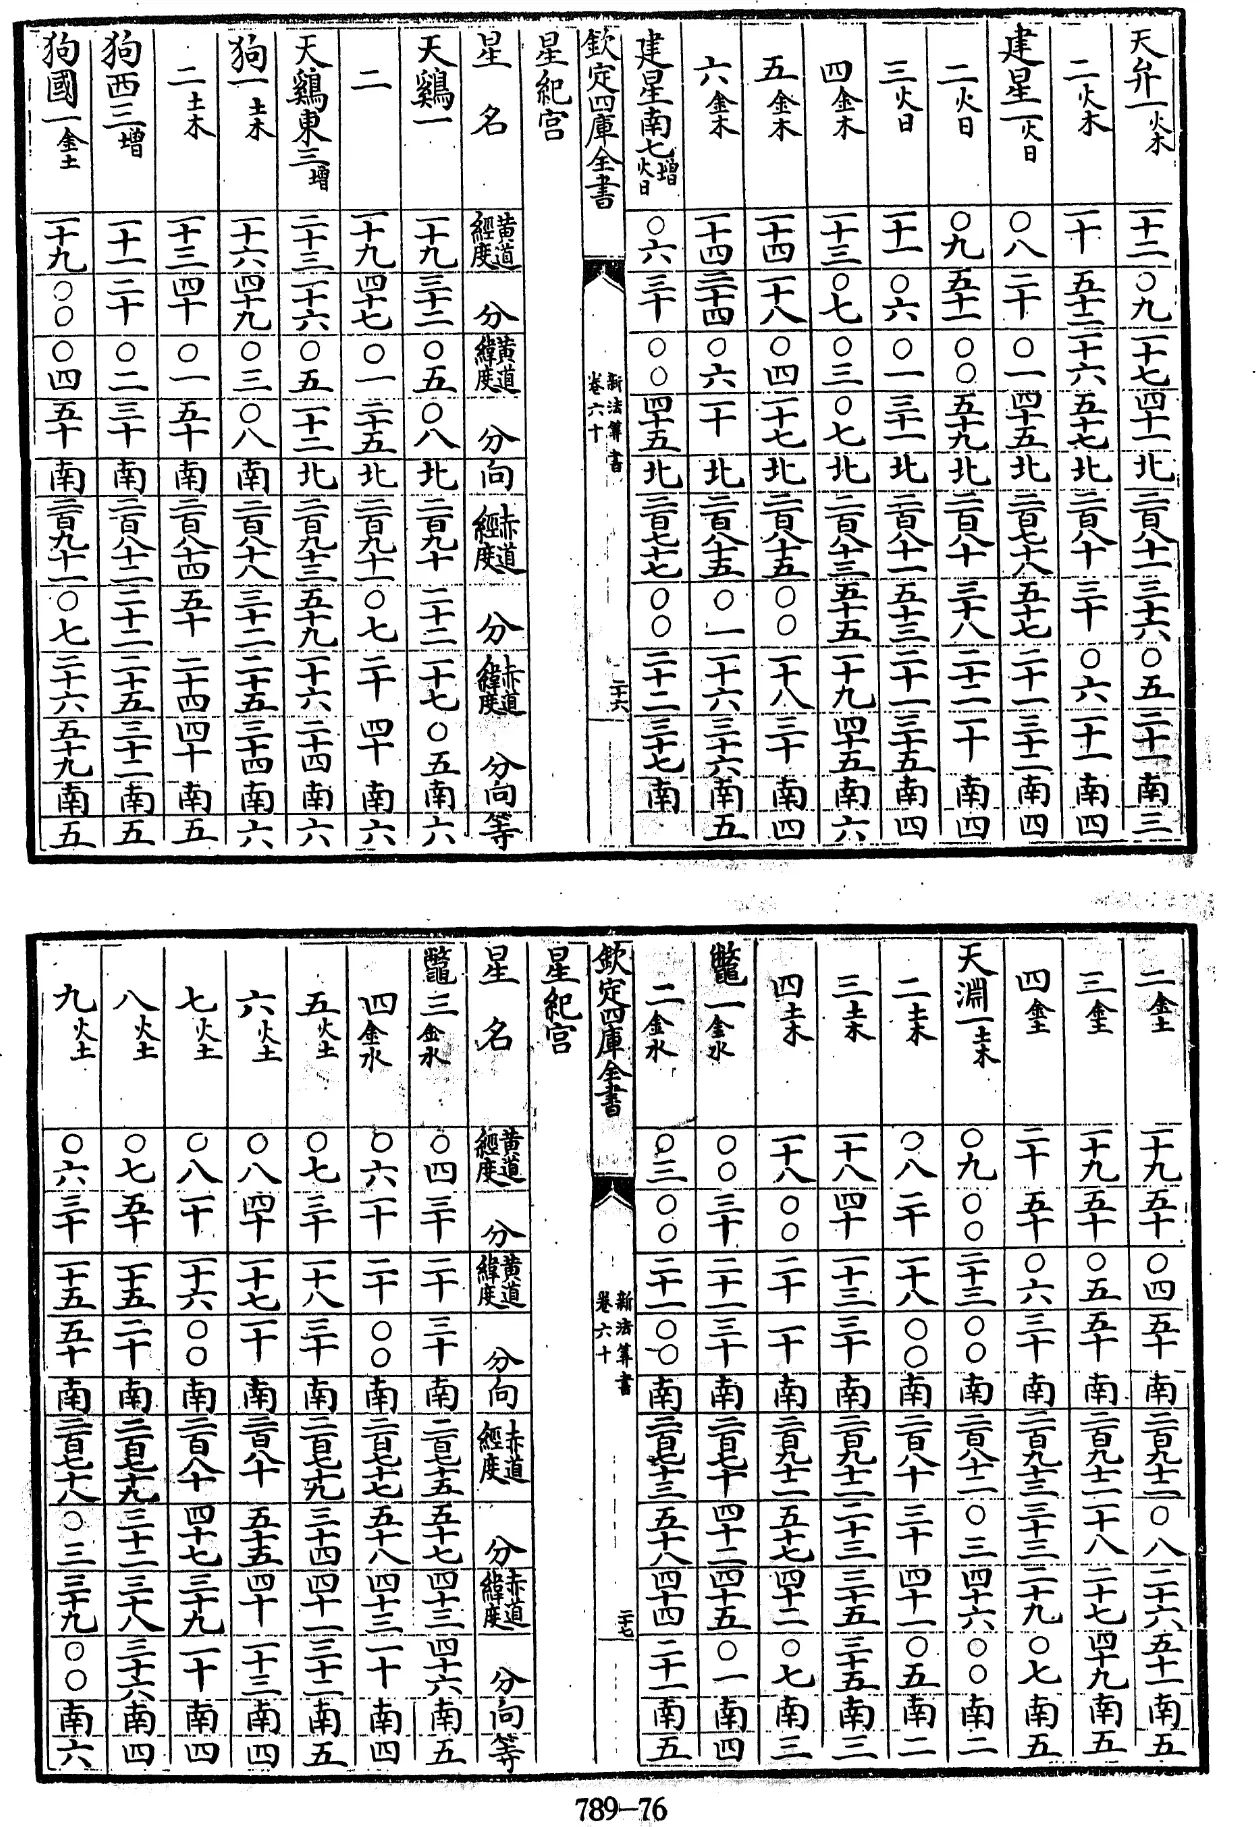 天弁一火木 十二 〇九 二十七 四十一 北 二百八十一 三十六 〇五 二十一 南 三
二火木 一十 五十二 二十六 五十七 北 二百八十 三十 〇六 一十一 南 四
建星一火日 〇八 二十 〇一 四十五 北 二百七十八 五十七 二十一 三十二 南 四
二火日 〇九 五十一 〇〇 五十九 北 二百八十 三十八 二十二 一十 南 四
三火日 十一 〇六 〇一 三十一 北 二百八十一 五十三 二十一 三十五 南 四
四金木 一十三 〇七 〇三 〇七 北 二百八十三 五十五 一十九 四十五 南 六
五金木 一十四 一十八 〇四 一十七 北 二百八十五 〇〇 一十八 三十 南 四
六金木 一十四 三十四 〇六 一十 北 二百八十五 〇一 一十六 三十六 南 五
建星南七增火日 〇六 三十 〇〇 四十五 北 二百七十七 〇〇 二十二 三十七 南
欽定四庫全書 新法算書 卷六十 二十六
星紀宮
星名 黃道經度 分 黃道緯度 分 向 赤道經度 分 赤道緯度 分 向 等
天鷄一 一十九 三十二 〇五 〇八 北 二百九十 二十二 一十七 〇五 南 六
二 一十九 四十七 〇一 二十五 北 二百九十一 〇七 二十 四十 南 六
天鷄東三增 二十三 一十六 〇五 一十二 北 二百九十三 五十九 一十六 二十四 南 六
狗一土木 一十六 四十九 〇三 〇八 南 二百八十八 三十二 二十五 三十四 南 六
二土木 一十三 四十 〇一 五十 南 二百八十四 五十 二十四 四十 南 五
狗西三增 十一 二十 〇二 三十 南 二百八十二 二十二 二十五 三十二 南 五
狗國一金土 一十九 〇〇 〇四 五十 南 二百九十一 〇七 二十六 五十九 南 五
二金土 一十九 五十 〇四 五十 南 二百九十二 〇八 二十六 五十一 南 五
三金土 一十九 五十 〇五 五十 南 二百九十二 一十八 二十七 四十九 南 五
四金土 二十 五十 〇六 三十 南 二百九十三 三十三 二十九 〇七 南 五
天淵一土木 〇九 〇〇 二十三 〇〇 南 二百八十二 〇三 四十六 〇〇 南 二
二土木 〇八 二十 一十八 〇〇 南 二百八十 三十 四十一 〇五 南 二
三土木 一十八 四十 一十三 三十 南 二百九十二 二十三 三十五 三十五 南 三
四土木 一十八 〇〇 二十 一十 南 二百九十二 五十七 四十二 〇七 南 三
鼈一金水 〇〇 三十 二十一 三十 南 二百七十 四十二 四十五 〇一 南 四
二金水 〇三 〇〇 二十一 〇〇 南 二百七十三 五十八 四十四 二十一 南 五
欽定四庫全書 新法算書 卷六十 二十七
星紀宮
星名 黃道經度 分 黃道緯度 分 向 赤道經度 分 赤道緯度 分 向 等
鼈三金水 〇四 三十 二十 三十 南 二百七十五 五十七 四十三 四十六 南 五
四金水 〇六 一十 二十 〇〇 南 二百七十七 五十八 四十三 一十 南 四
五火土 〇七 三十 一十八 三十 南 二百七十九 三十四 四十一 三十二 南 五
六火土 〇八 四十 一十七 一十 南 二百八十 五十五 四十 一十三 南 四
七火土 〇八 一十 一十六 〇〇 南 二百八十 四十七 三十九 一十 南 四
八火土 〇七 五十 一十五 二十 南 二百七十九 三十二 三十八 三十六 南 四
九火土 〇六 三十 一十五 五十 南 二百七十八 〇三 三十九 〇〇 南 六
789-76